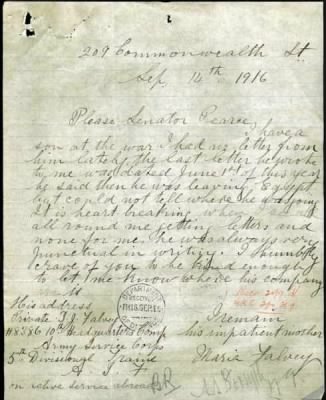 209 Commonwealth St
Sep 14th 1916
Please Senator Pearce,
I have a
son at the war I had no letter from
him lately the last letter he wrote
to me was dated June 1st of this year
he said then he was leaving Egypt
but could not tell where he was going
It is heart breaking when I see
all round me getting letters and
none for me, he was always very
punctual in writing. I humbly
crave of you to be kind enough
to let me know where his company
is at
His address
Private T J Falvey
#8386 10th Headquarters Comp
Army Service Corps
5th Divisional Train
A I F
on active service abroad
I remain
his impatient mother
Maria Falvey
BR